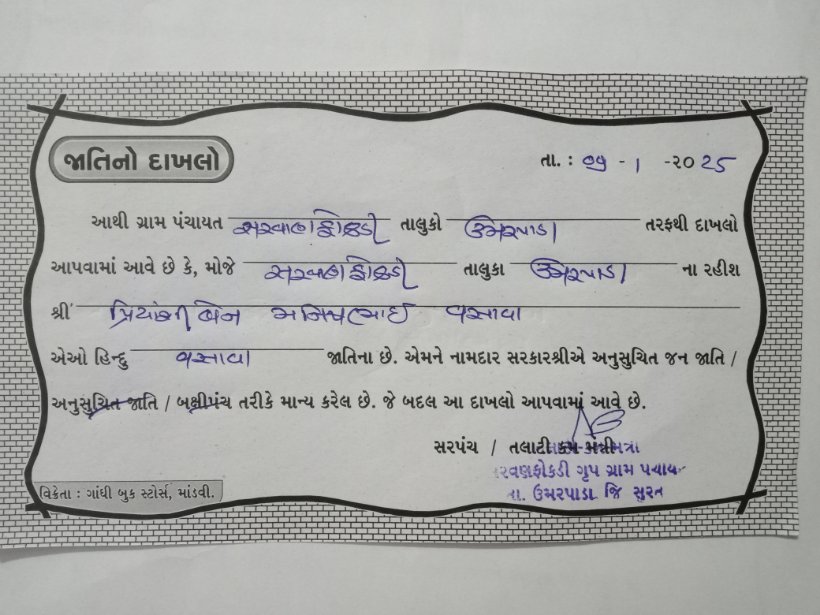 જાતિનો દાખલો
તા. : ૦૧ - ૧ -૨૦ 25
આથી ગ્રામ પંચાયત સરવણફોકડી તાલુકો ઉમરપાડા તરફથી દાખલો
આપવામાં આવે છે કે, મોજે સરવણફોકડી તાલુકા ઉમરપાડા ના રહીશ
શ્રી પ્રિયાંશીબેન મનિષભાઈ વસાવા
એઓ હિન્દુ વસાવા જાતિના છે. એમને નામદાર સરકારશ્રીએ અનુસુચિત જન જાતિ /
અનુસુચિત જાતિ / બક્ષીપંચ તરીકે માન્ય કરેલ છે. જે બદલ આ દાખલો આપવામાં આવે છે.
સરપંચ / તલાટી કમ મંત્રી
રવણફોકડી ગૃપ ગ્રામ પંચાય
તા. ઉમરપાડા જિ સુરત
વિક્રેતા : ગાંધી બુક સ્ટોર્સ, માંડવી.